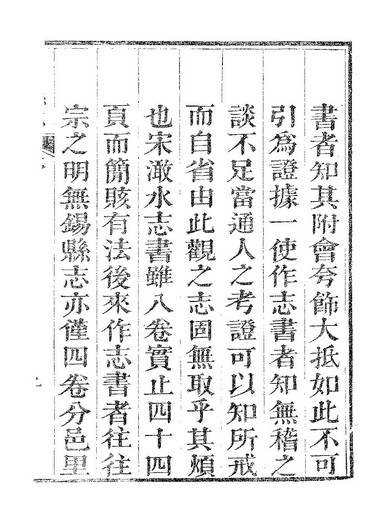 書者知其附會夸飾大抵如此不可
引爲證據一使作志書者知無稽之
談不足當通人之考證可以知所戒
而自省由此觀之志固無取乎其煩
也宋澉水志書雖八卷實止四十四
頁而簡賅有法後來作志書者往往
宗之明無錫縣志亦僅四卷分邑里